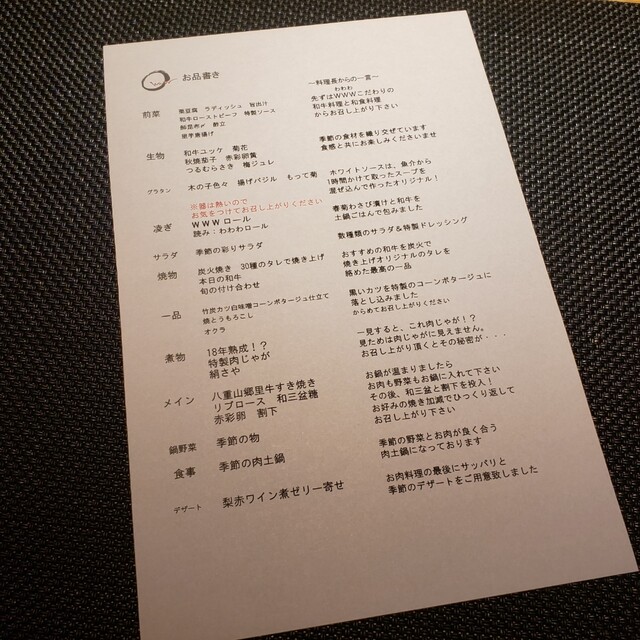 お品書き
～料理長からの一言～
前菜
栗豆腐 ラディッシュ 旨出汁
和牛ローストビーフ 特製ソース
里芋唐揚げ
わわわ
先ずはWWWこだわりの
和牛料理と和食料理
からお召し上がり下さい
生物
和牛ユッケ 菊花
秋焼茄子 赤彩卵黄
つるむらさき 梅ジュレ
季節の食材を織り交ぜています
食感と共にお楽しみくださいませ
グラタン
木の子色々 揚げバジル もって菊
ホワイトソースは、魚介から
1時間かけて取ったスープを
混ぜ込んで作ったオリジナル！
※器は熱いので
お気をつけてお召し上がりください
凌ぎ
WWWロール
読み：わわわロール
春菊わさび漬けと和牛を
土鍋ごはんで包みました
サラダ
季節の彩りサラダ
数種類のサラダ＆特製ドレッシング
焼物
炭火焼き 30種のタレで焼き上げ
本日の和牛
旬の付け合わせ
おすすめの和牛を炭火で
焼き上げオリジナルのタレを
絡めた最高の一品
一品
竹炭カツ白味噌コーンポタージュ仕立て
焼とうもろこし
オクラ
黒いカツを特製のコーンポタージュに
落とし込みました
からめてお召し上がりください
煮物
18年熟成！？
特製肉じゃが
絹さや
一見すると、これ肉じゃが！？
見ためは肉じゃがに見えません。
お召し上がり頂くとその秘密が・・・
メイン
八重山郷里牛すき焼き
リブロース 和三盆糖
赤彩卵 割下
お鍋が温まりましたら
お肉も野菜もお鍋に入れて下さい
その後、和三盆と割下を投入！
お好みの焼き加減でひっくり返して
お召し上がり下さい
鍋野菜
季節の物
食事
季節の肉土鍋
季節の野菜とお肉が良く合う
肉土鍋になっております
デザート
梨赤ワイン煮ゼリー寄せ
お肉料理の最後にサッパリと
季節のデザートをご用意致しました